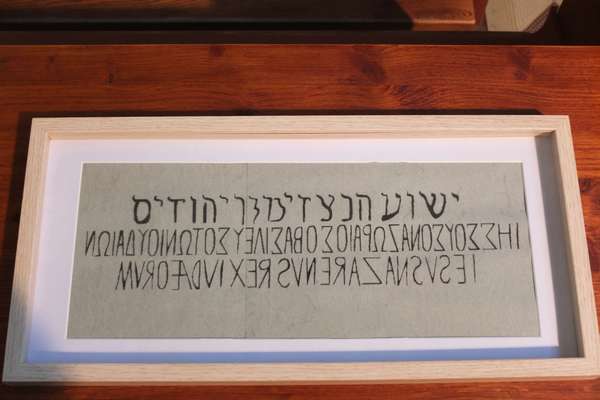 ישוע הנצדימזר יהודיס
ΙΗΣΟΥΣΟΝΑΖΩΡΑΙΟΣΟΒΑΣΙΛΕΥΣΤΩΝΙΟΥΔΑΙΩΝ
IESVSNAZARENVSREXIVDÆORVM